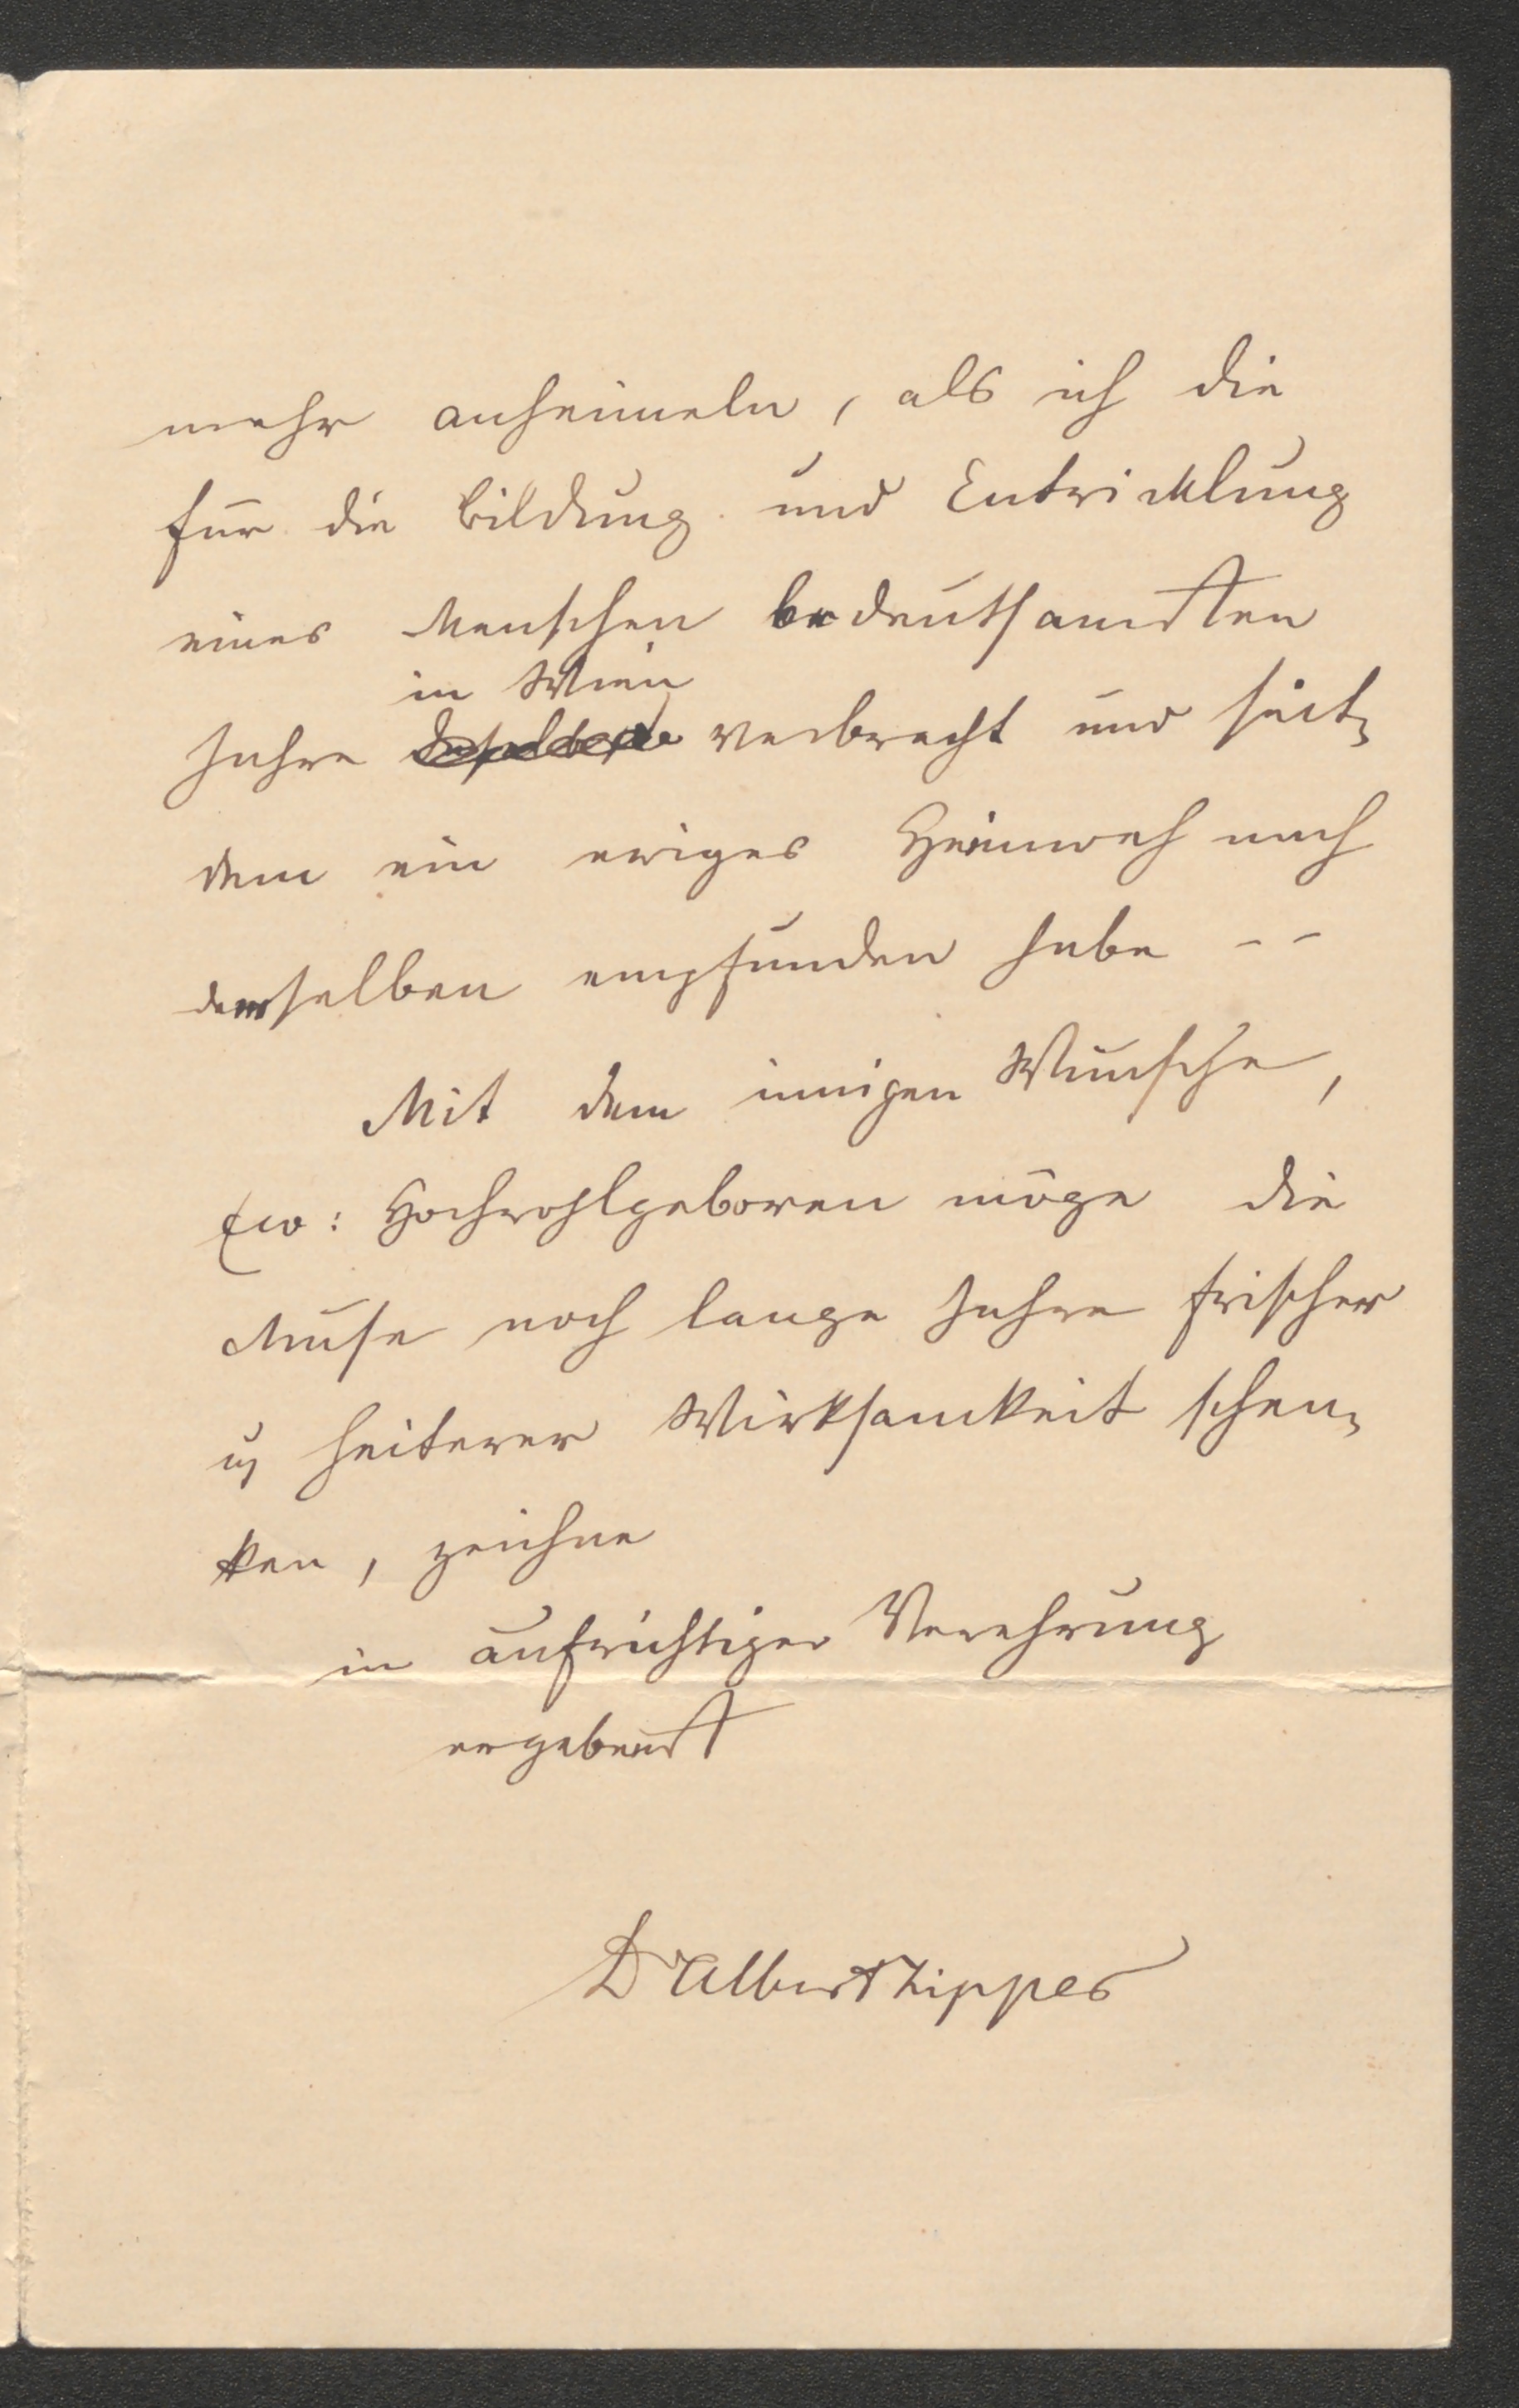 mehr anheimeln, als ich die
für die Bildung und Entwicklung
eines Menschen bedeutsamsten
in Wien
Jahre verbracht und seit-
dem ein ewiges Heimweh nach
demselben empfunden habe --
Mit dem innigen Wunsche,
Ew: Hochwohlgeboren möge die
Muse noch lange Jahre frischer
u heiterer Wirksamkeit schen-
ken, zeichne
in aufrichtiger Verehrung
ergebenst
Dr Albert Zipper